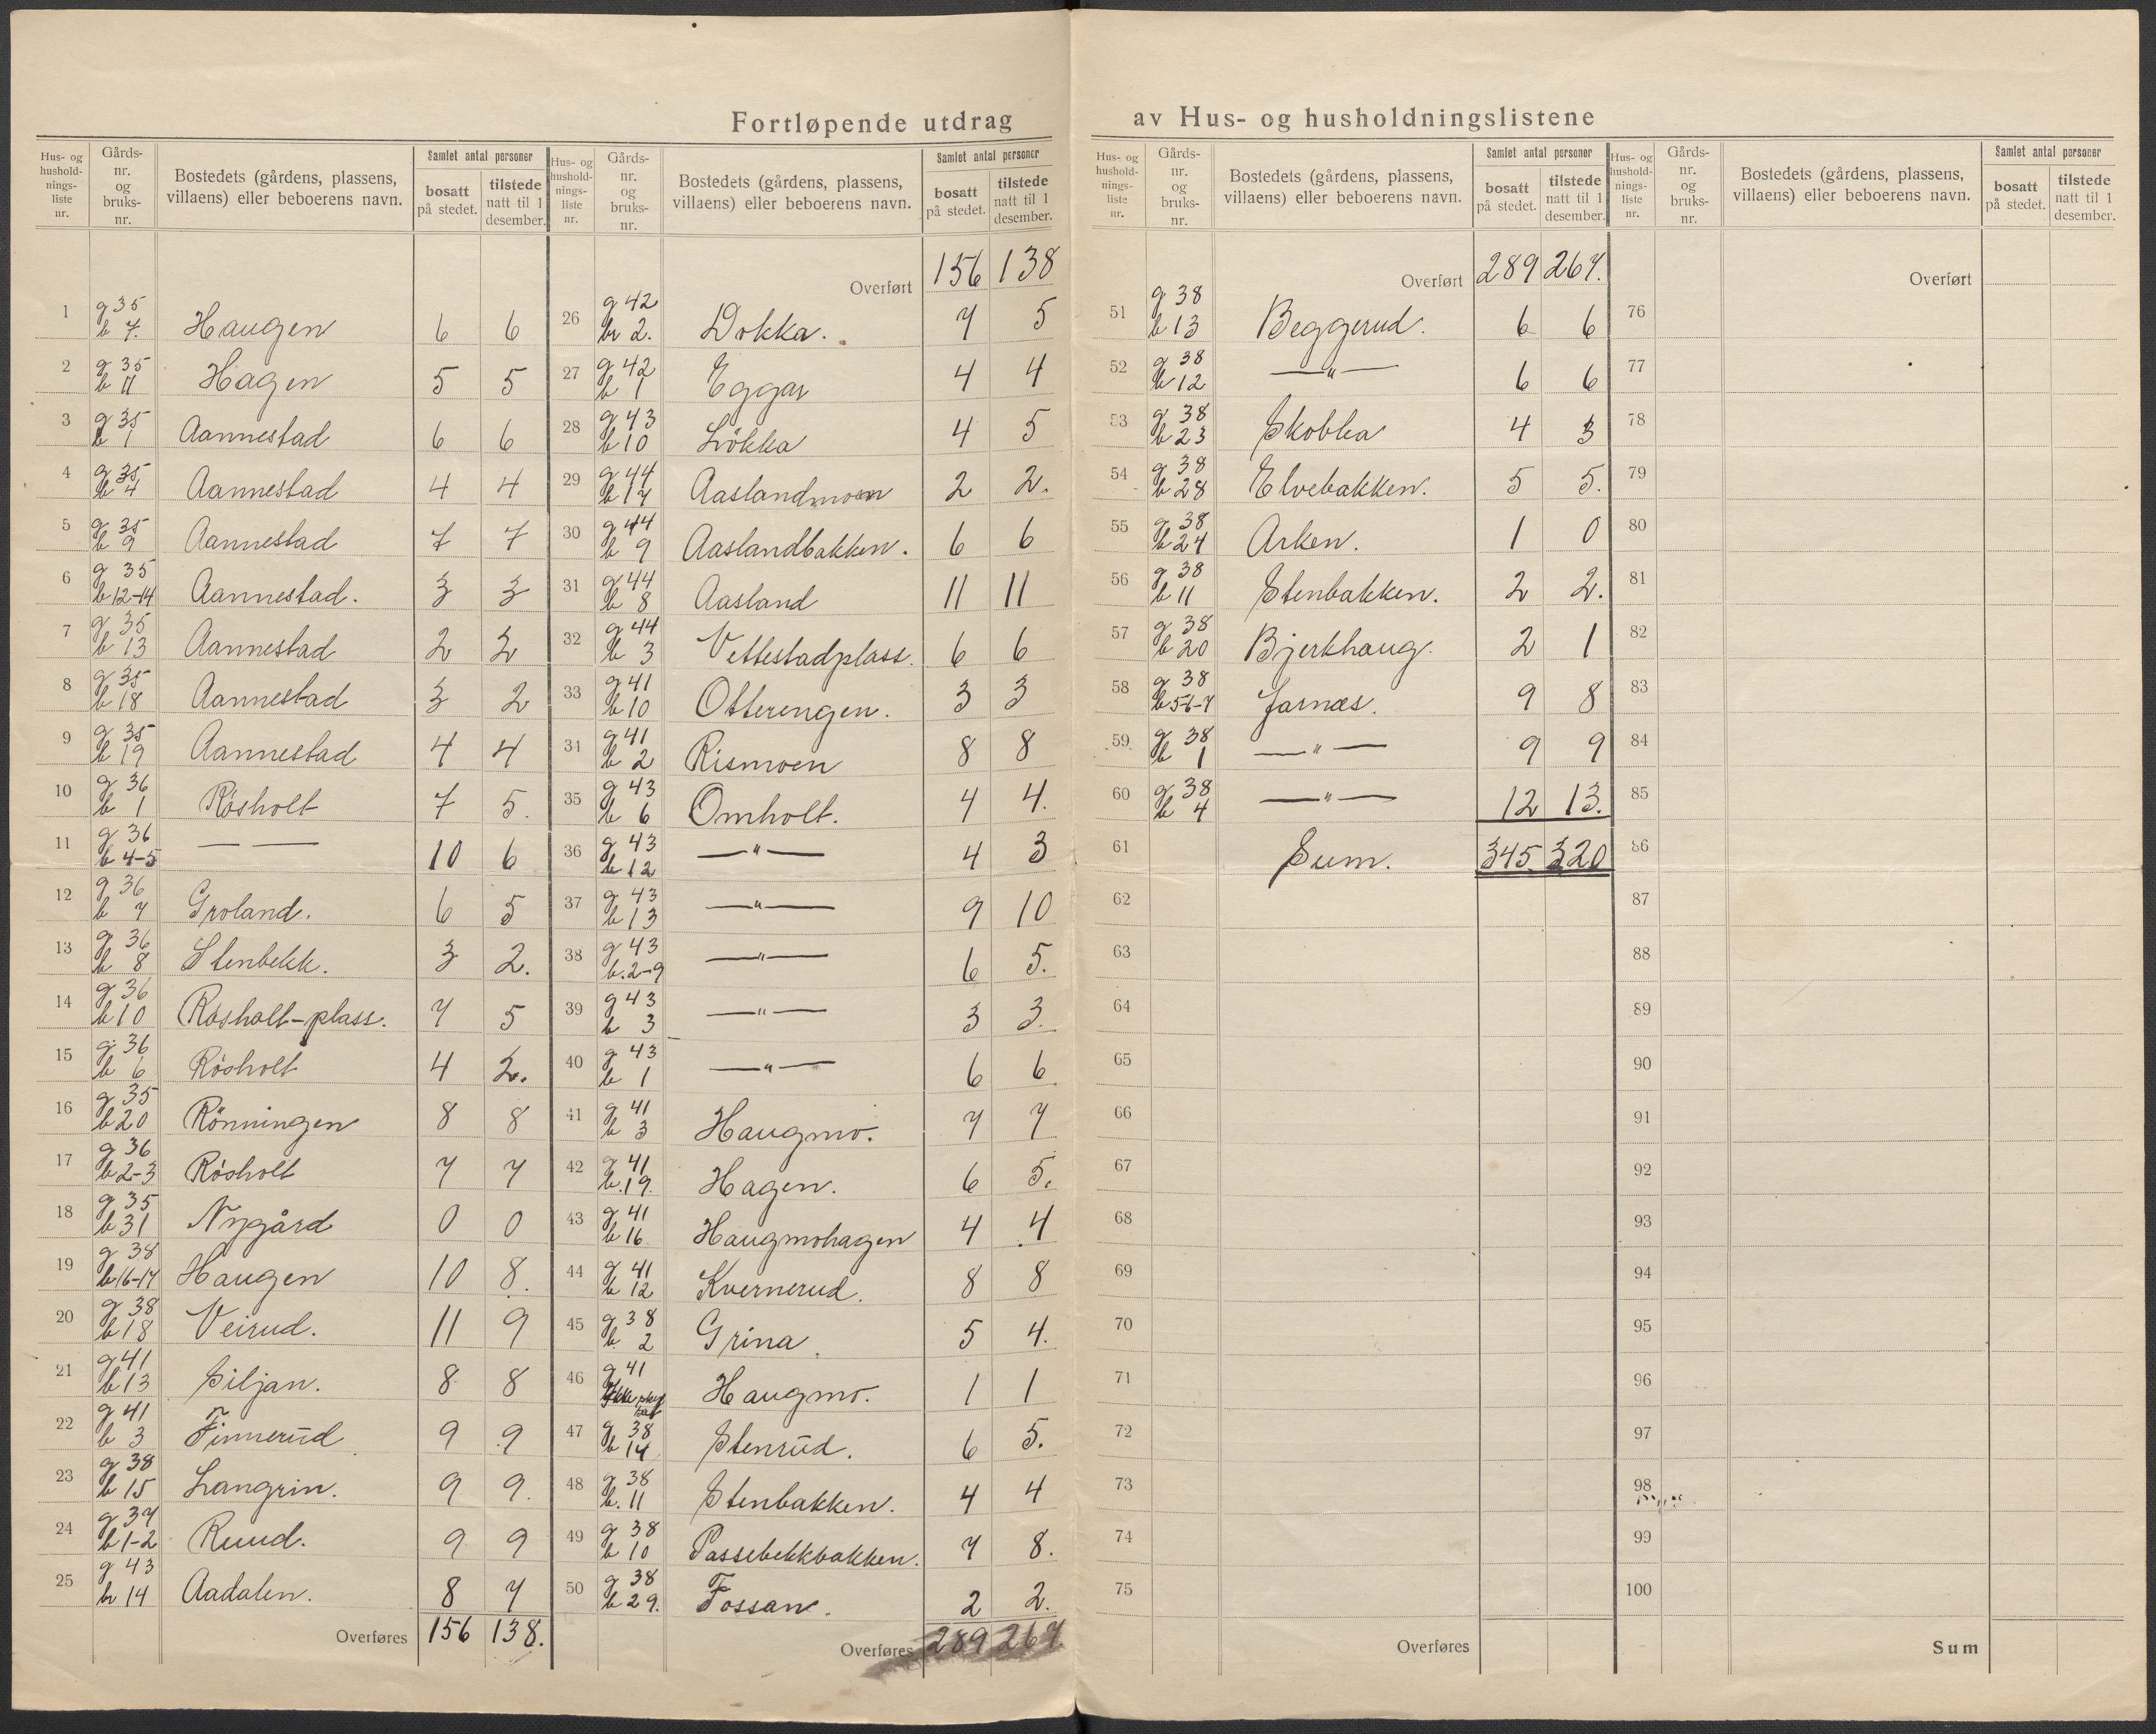 Fortløpende utdrag av Hus- og husholdningslistene
Hus- og husholdnings-liste nr. | Gårds-nr. og bruks-nr. | Bostedets (gårdens, plassens, villaens) eller beboerens navn. | Samlet antal personer bosatt på stedet. | tilstede natt til 1 desember.
1 g 35 b 7. Haugen 6 6
2 g 35 b 11 Hagen 5 5
3 g 35 b 1 Aannestad 6 6
4 g 35 b 4 Aannestad 4 4
5 g 35 b 9 Aannestad 7 7
6 g 35 b 12-14 Aannestad. 3 3
7 g 35 b 13 Aannestad 2 2
8 g 35 b 18 Aannestad 3 2
9 g 35 b 19 Aannestad 4 4
10 g 36 b 1 Rösholt 7 5.
11 g 36 b 4-5 — — 10 6
12 g 36 b 7 Groland. 6 5
13 g 36 b 8 Stenbekk. 3 2.
14 g 36 b 10 Rösholt-plass. 7 5
15 g 36 b 6 Rösholt 4 2.
16 g 35 b 20 Rönningen 8 8
17 g 36 b 2-3 Rösholt 7 7
18 g 35 b 31 Nygård 0 0
19 g 38 b 16-17 Haugen 10 8.
20 g 38 b 18 Veirud. 11 9
21 g 41 b 13 Siljan. 8 8
22 g 41 b 3 Finnerud 9 9
23 g 38 b 15 Langrin. 9 9.
24 g 37 b 1-2 Ruud. 9 9
25 g 43 br 14 Aadalen. 8 7
Overføres 156 138.
Hus- og husholdnings-liste nr. | Gårds-nr. og bruks-nr. | Bostedets (gårdens, plassens, villaens) eller beboerens navn. | Samlet antal personer bosatt på stedet. | tilstede natt til 1 desember.
Overført 156 138
26 g 42 br 2. Dokka. 7 5
27 g 42 b 1 Eggar 4 4
28 g 43 b 10 Lökka 4 5
29 g 44 b 17 Aaslandmoen 2 2.
30 g 44 b 9 Aaslandbakken. 6 6
31 g 44 b 8 Aasland 11 11
32 g 44 b 3 Vettestadplass. 6 6
33 g 41 b 10 Otterengen. 3 3
34 g 41 b 2 Rismoen 8 8
35 g 43 b 6 Omholt. 4 4.
36 g 43 b 12 —"— 4 3
37 g 43 b 13 —"— 9 10
38 g 43 b. 2-9 —"— 6 5.
39 g 43 b 3 —"— 3 3.
40 g 43 b 1 —"— 6 6
41 g 41 b 3 Haugmo. 7 7
42 g 41 b. 19. Hagen. 6 5.
43 g 41 b 16. Haugmohagen 4 4
44 g 41 b 12 Kvernerud. 8 8
45 g 38 b. 2 Grina. 5 4.
46 g 41 Haugmo. 1 1
47 g 38 b 14 Stenrud. 6 5.
48 g 38 b. 11 Stenbakken. 4 4
49 g 38 b 10 Passebekkbakken. 7 8.
50 g 38 b 29. Fossan. 2 2.
Overføres 289 267.
Hus- og husholdnings-liste nr. | Gårds-nr. og bruks-nr. | Bostedets (gårdens, plassens, villaens) eller beboerens navn. | Samlet antal personer bosatt på stedet. | tilstede natt til 1 desember.
Overført 289 267.
51 g 38 b 13 Beggerud. 6 6
52 g 38 b 12 —"— 6 6
53 g 38 b 23 Skobba 4 3
54 g 38 b 28 Elvebakken. 5 5.
55 g 38 b 24 Arken. 1 0
56 g 38 b 11 Stenbakken. 2 2.
57 g 38 b 20 Bjerkhaug. 2 1
58 g 38 b 5-6-7 Jarnæs. 9 8
59 g 38 b 1 —"— 9 9
60 g 38 b 4 —"— 12 13.
61 Sum. 345. 320
62
63
64
65
66
67
68
69
70
71
72
73
74
75
Overføres
Hus- og husholdnings-liste nr. | Gårds-nr. og bruks-nr. | Bostedets (gårdens, plassens, villaens) eller beboerens navn. | Samlet antal personer bosatt på stedet. | tilstede natt til 1 desember.
Overført
76
77
78
79
80
81
82
83
84
85
86
87
88
89
90
91
92
93
94
95
96
97
98
99
100
Sum